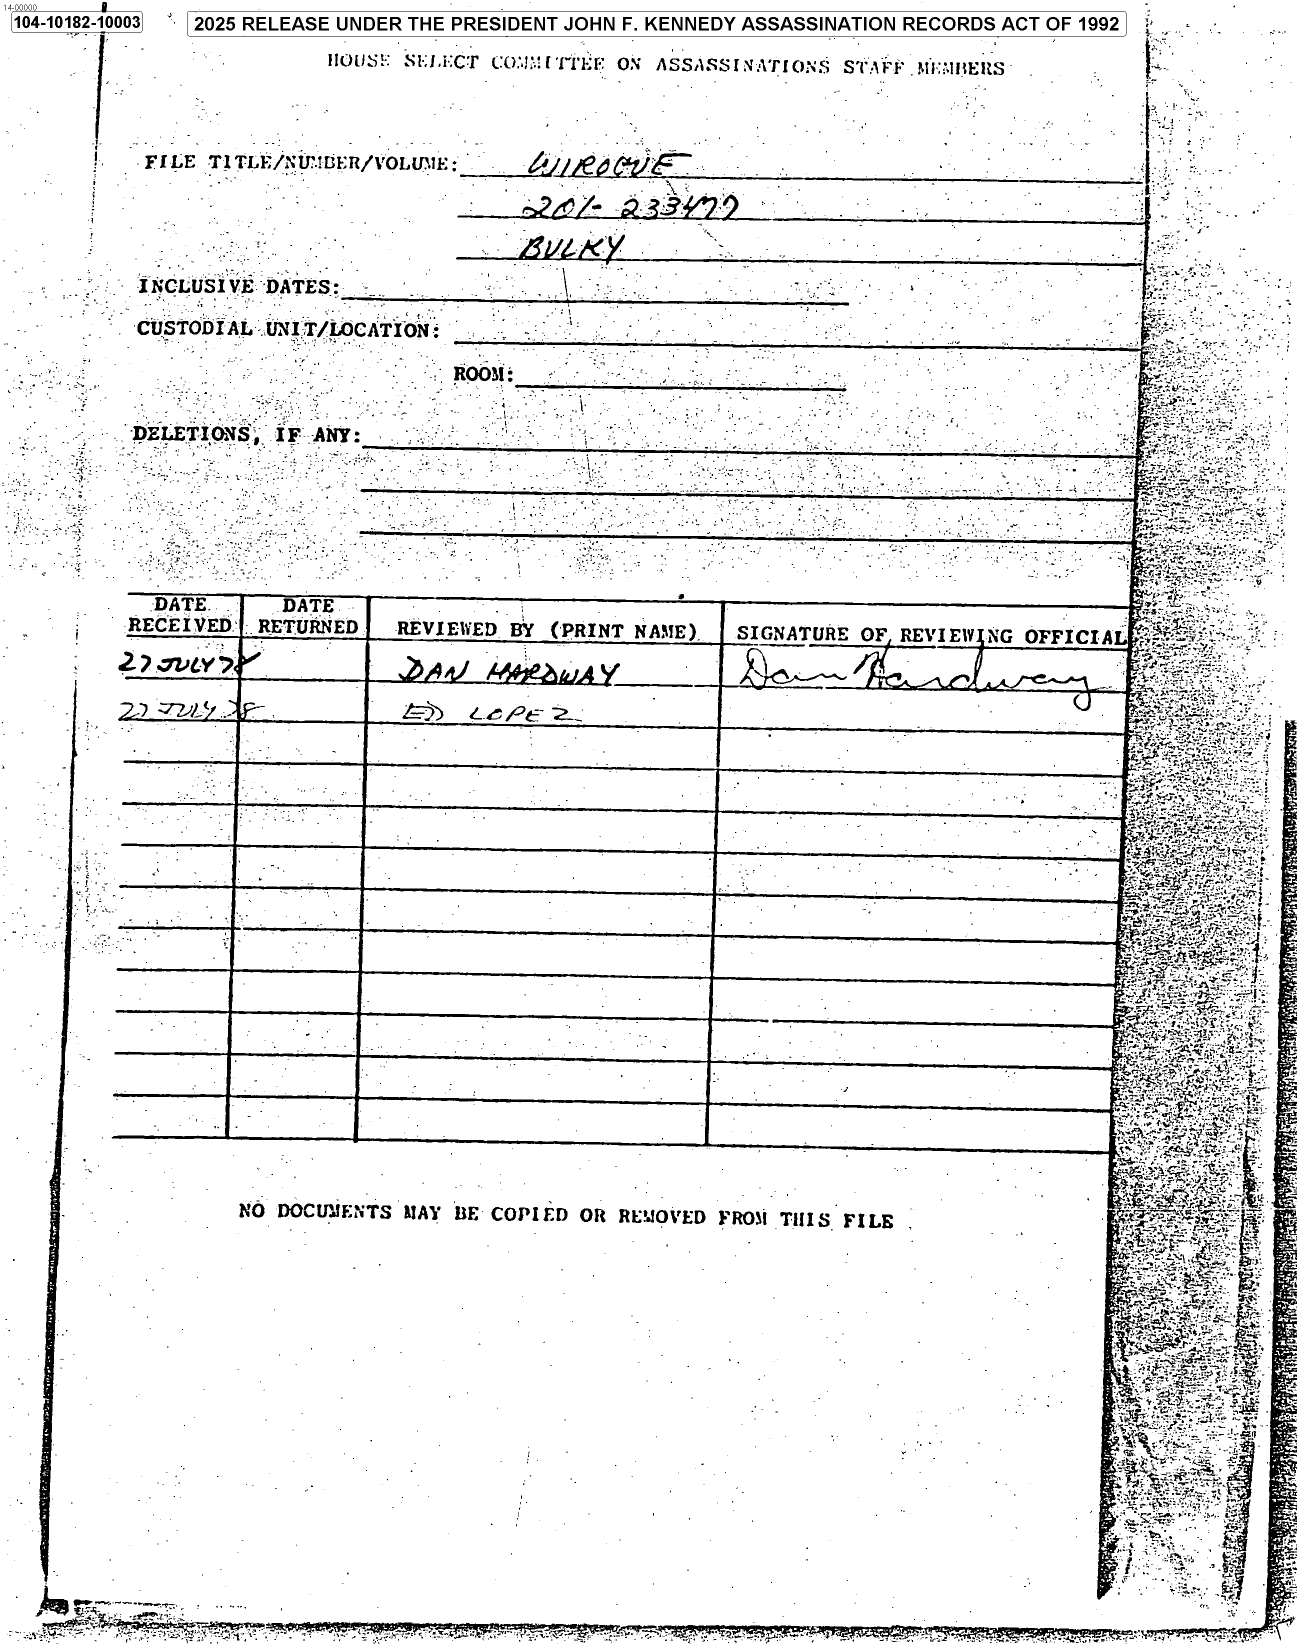 14-00000
104-10182-10003
2025 RELEASE UNDER THE PRESIDENT JOHN F. KENNEDY ASSASSINATION RECORDS ACT OF 1992
HOUSE SELECT COMMITTEE ON ASSASSINATIONS STAFF MEMBERS
FILE TITLE/NUMBER/VOLUME: WIROGUE
201- 233477
BULKY
INCLUSIVE DATES:
CUSTODIAL UNIT/LOCATION:
ROOM:
DELETIONS, IF ANY:
DATE RECEIVED DATE RETURNED REVIEWED BY (PRINT NAME) SIGNATURE OF REVIEWING OFFICIAL
27 JULY 78 DAN HARDWAY Dan Hardway
27 JULY 78 ED LOPEZ
NO DOCUMENTS MAY BE COPIED OR REMOVED FROM THIS FILE